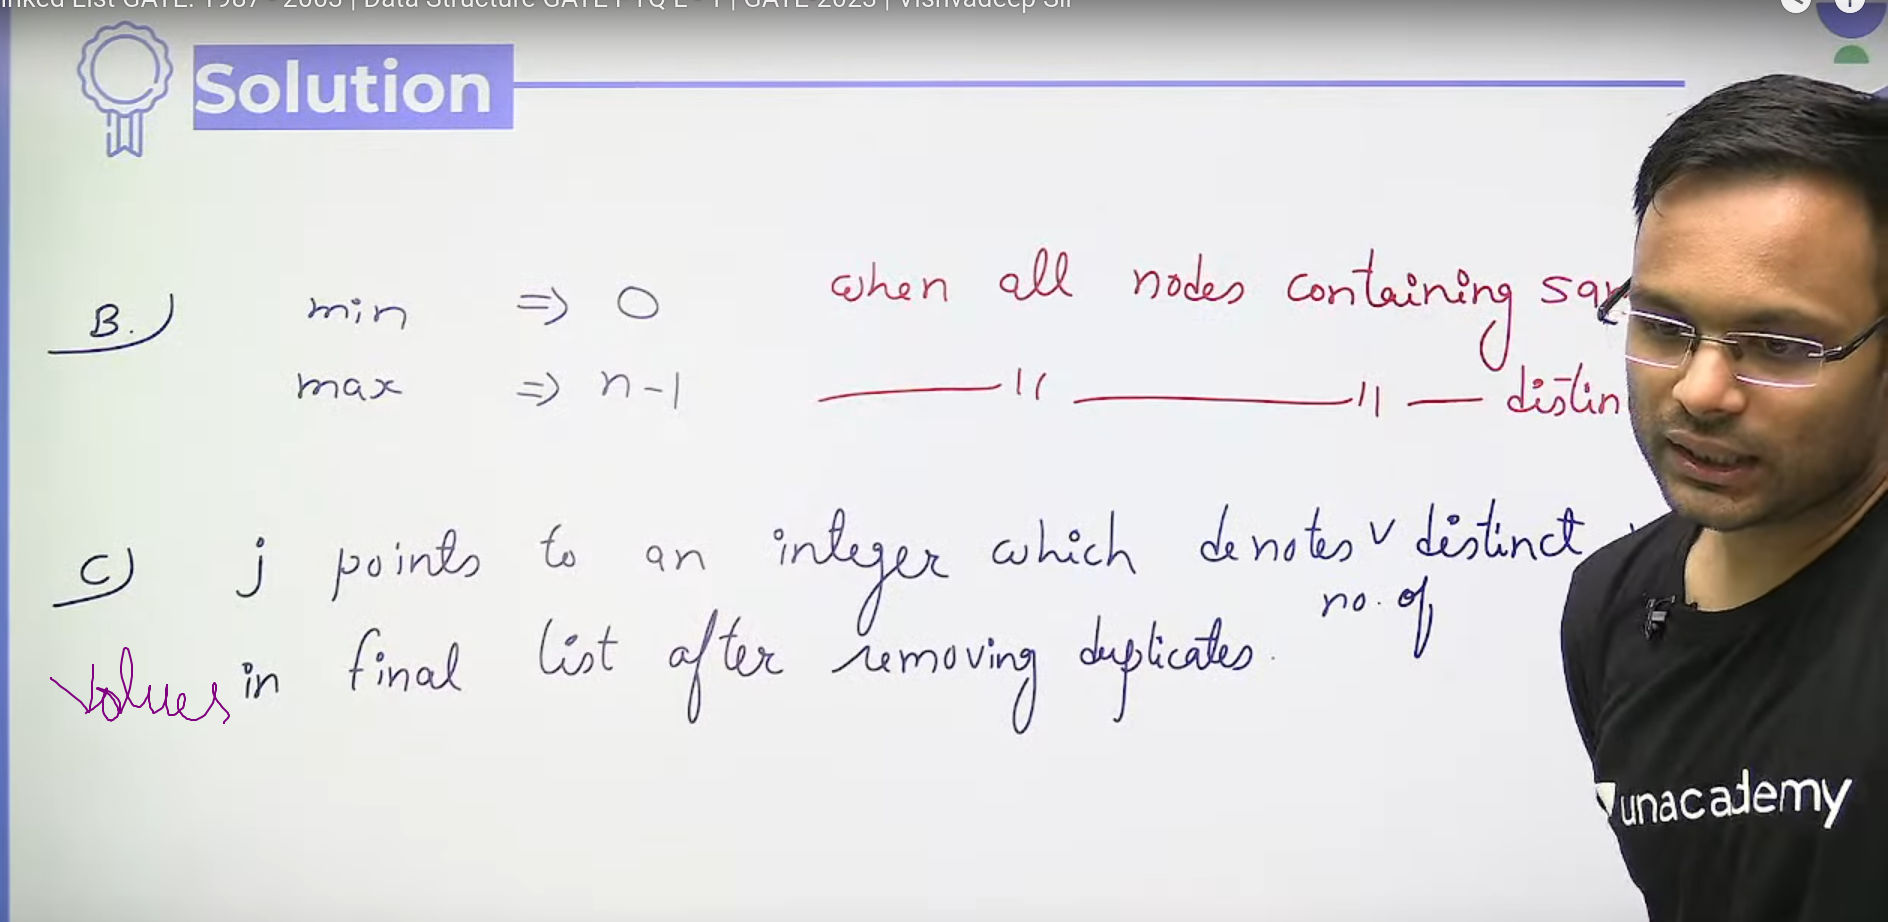 inked List GATE: 1987 - 2005 | Data Structure GATE PYQ L - 1 | GATE 2023 | Vishvadeep Sir
Solution
B.) min => 0 when all nodes containing
max => n-1 —— 11 —— 11 — distin
C) j points to an integer which denotes v distinct
no. of
values in final list after removing duplicates.
unacademy